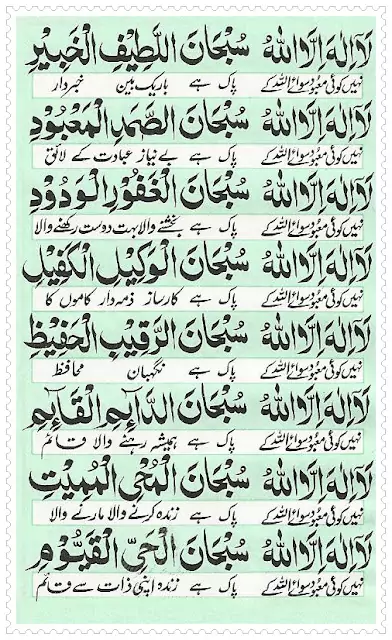 لَا إِلٰهَ إِلَّا اللهُ سُبْحَانَ اللَّطِيْفِ الْخَبِيْرِ
نہیں کوئی معبود سوائے اللہ کے پاک ہے باریک بین خبردار
لَا إِلٰهَ إِلَّا اللهُ سُبْحَانَ الصَّمَدِ الْمَعْبُوْدِ
نہیں کوئی معبود سوائے اللہ کے پاک ہے بے نیاز عبادت کے لائق
لَا إِلٰهَ إِلَّا اللهُ سُبْحَانَ الْغَفُوْرِ الْوَدُوْدِ
نہیں کوئی معبود سوائے اللہ کے پاک ہے بخشنے والا بہت دوست رکھنے والا
لَا إِلٰهَ إِلَّا اللهُ سُبْحَانَ الْوَكِيْلِ الْكَفِيْلِ
نہیں کوئی معبود سوائے اللہ کے پاک ہے کارساز ذمہ دار کاموں کا
لَا إِلٰهَ إِلَّا اللهُ سُبْحَانَ الرَّقِيْبِ الْحَفِيْظِ
نہیں کوئی معبود سوائے اللہ کے پاک ہے نگہبان محافظ
لَا إِلٰهَ إِلَّا اللهُ سُبْحَانَ الدَّآئِمِ الْقَآئِمِ
نہیں کوئی معبود سوائے اللہ کے پاک ہے ہمیشہ رہنے والا قائم
لَا إِلٰهَ إِلَّا اللهُ سُبْحَانَ الْمُحْيِ الْمُمِيْتِ
نہیں کوئی معبود سوائے اللہ کے پاک ہے زندہ کرنے والا مارنے والا
لَا إِلٰهَ إِلَّا اللهُ سُبْحَانَ الْحَيِّ الْقَيُّوْمِ
نہیں کوئی معبود سوائے اللہ کے پاک ہے زندہ اپنی ذات سے قائم